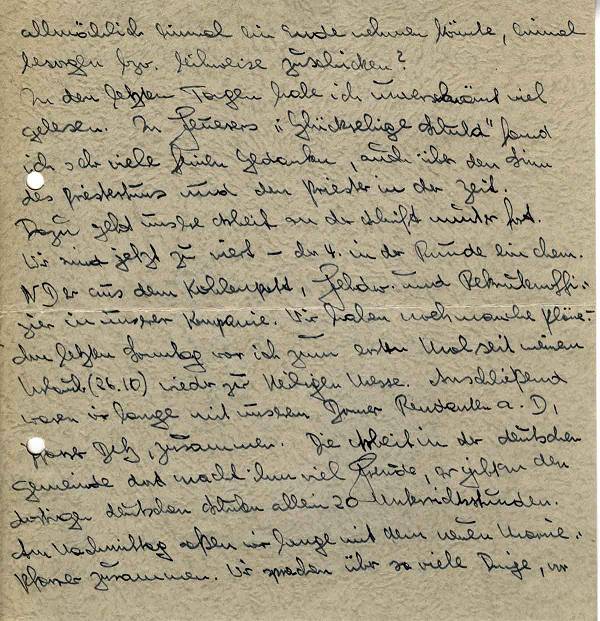 allmählich einmal ein Ende nehmen könnte, einmal
besorgen bzw. leihweise zuschicken?
In den letzten Tagen habe ich unverschämt viel
gelesen. In "Glückselige Schuld" fand
ich sehr viele feine Gedanken, auch über den Sinn
des Priestertums und den Priester in der Zeit.
Dazu geht unsere Arbeit an der Schrift munter fort.
Wir sind jetzt zu viert – der 4. in der Runde ein ehem.
NDer aus dem Kohlenpott, Feldw. und Rekrutenoffi-
zier in unserer Kompanie. Wir haben noch manche Pläne.
Am letzten Sonntag war ich zum ersten Mal seit meinem
Urlaub (26.10) wieder zur Heiligen Messe. Anschließend
waren wir lange mit unserem Rendanten a. D,
Pfarrer, zusammen. Die Arbeit in der deutschen
Gemeinde dort macht ihm viel Freude, er gibt an den
dortigen deutschen Schulen allein 20 Unterrichtsstunden.
Am Nachmittag saßen wir lange mit dem neuen Marine-
pfarrer zusammen. Wir sprachen über so viele Dinge, wir